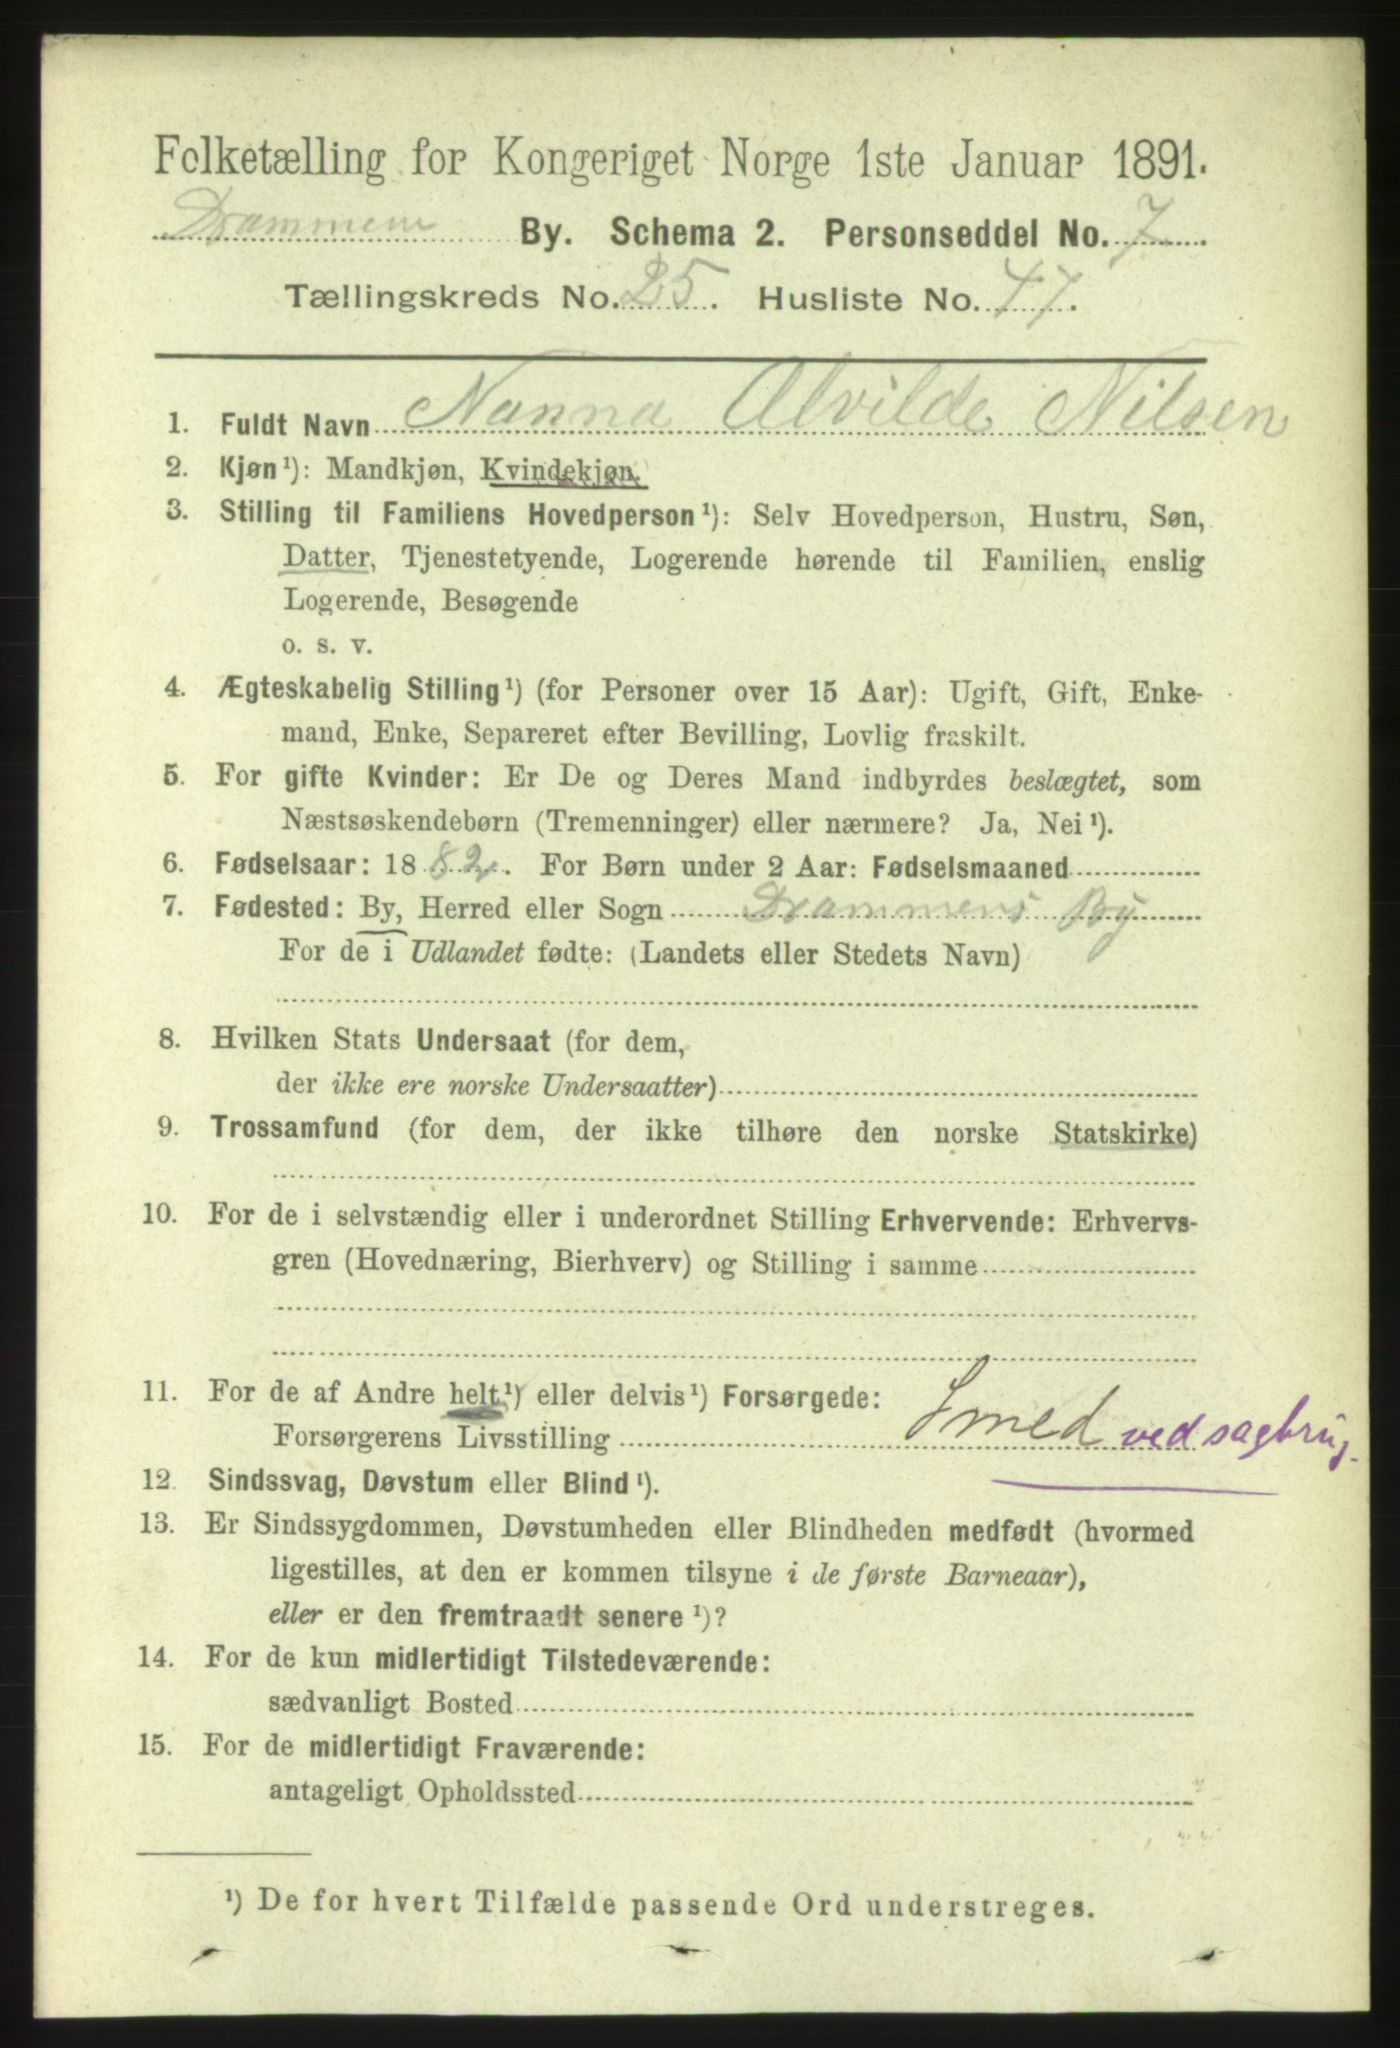 Folketælling for Kongeriget Norge 1ste Januar 1891.
Drammens By. Schema 2. Personseddel No. 7
Tællingskreds No. 25. Husliste No. 47.
1. Fuldt Navn Nanna Alvilde Nilsen
2. Kjøn¹): Mandkjøn, Kvindekjøn.
3. Stilling til Familiens Hovedperson¹): Selv Hovedperson, Hustru, Søn,
Datter, Tjenestetyende, Logerende hørende til Familien, enslig
Logerende, Besøgende
o. s. v.
4. Ægteskabelig Stilling¹) (for Personer over 15 Aar): Ugift, Gift, Enke-
mand, Enke, Separeret efter Bevilling, Lovlig fraskilt.
5. For gifte Kvinder: Er De og Deres Mand indbyrdes beslægtet, som
Næstsøskendebørn (Tremenninger) eller nærmere? Ja, Nei¹).
6. Fødselsaar: 1882. For Børn under 2 Aar: Fødselsmaaned
7. Fødested: By, Herred eller Sogn Drammens By
For de i Udlandet fødte: (Landets eller Stedets Navn)
8. Hvilken Stats Undersaat (for dem,
der ikke ere norske Undersaatter)
9. Trossamfund (for dem, der ikke tilhøre den norske Statskirke)
10. For de i selvstændig eller i underordnet Stilling Erhvervende: Erhvervs-
gren (Hovednæring, Bierhverv) og Stilling i samme
11. For de af Andre helt¹) eller delvis¹) Forsørgede:
Forsørgerens Livsstilling Smed ved sagbrug.
12. Sindssvag, Døvstum eller Blind¹).
13. Er Sindssygdommen, Døvstumheden eller Blindheden medfødt (hvormed
ligestilles, at den er kommen tilsyne i de første Barneaar),
eller er den fremtraadt senere¹)?
14. For de kun midlertidigt Tilstedeværende:
sædvanligt Bosted
15. For de midlertidigt Fraværende:
antageligt Opholdssted
¹) De for hvert Tilfælde passende Ord understreges.